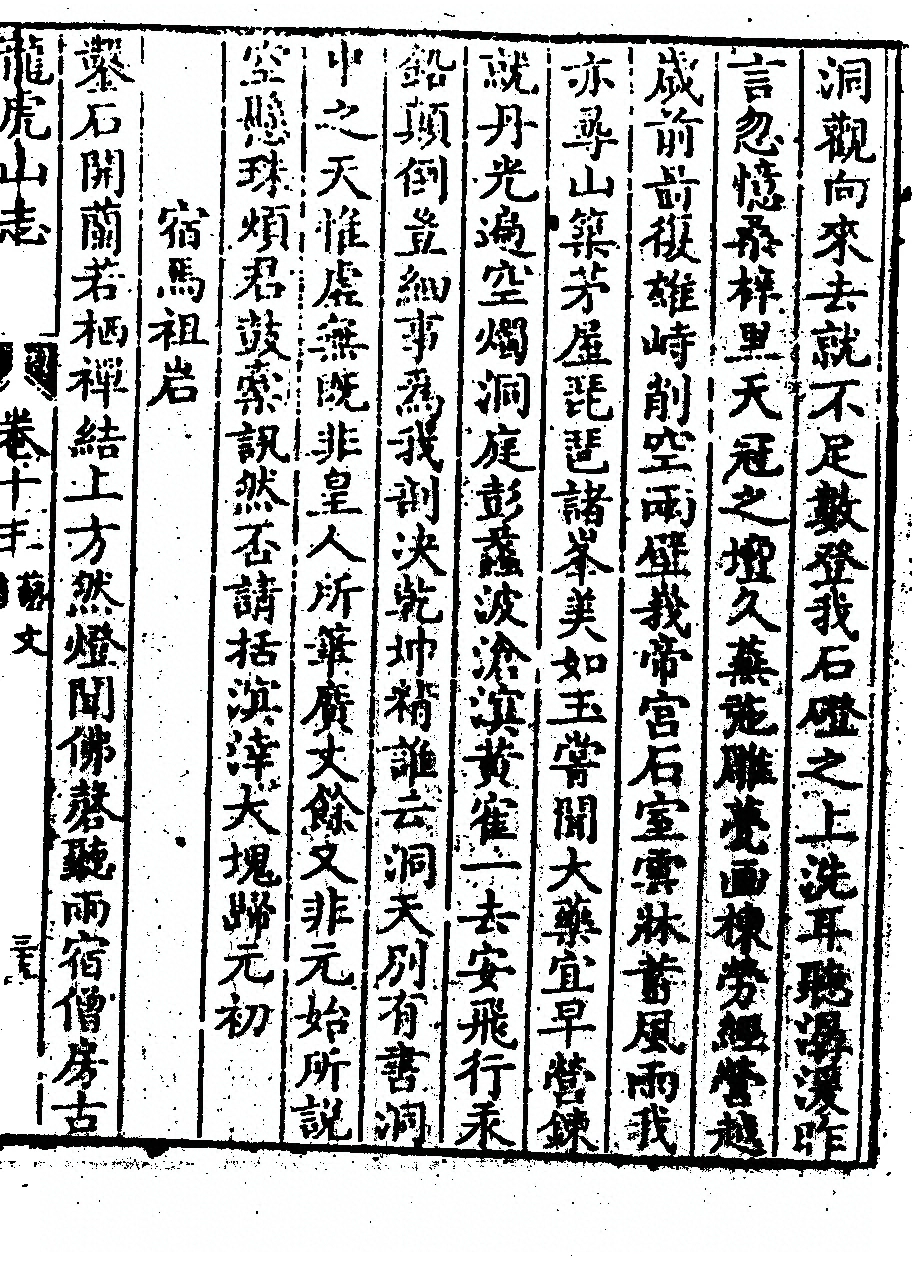 洞觀向來去就不足數登我石磴之上洗耳聽潺湲昨
言忽憶桑梓里天冠之壇久蕪菀雕甍畫棟勞經營越
歲前峝復雄峙削空兩壁峩帝宮石室雲牀蓄風雨我
亦尋山築茅屋琵琶諸峯美如玉嘗聞大藥宜早營鍊
就丹光遍空燭洞庭彭蠡波滄溟黃寉一去安飛行汞
鉛顛倒豈細事爲我剖决乾坤精誰云洞天別有書洞
中之天惟虛無既非皇人所篆廣丈餘又非元始所説
空懸珠煩君鼓索訊然否請括溟涬大塊歸元初
宿馬祖岩
鑿石開蘭若栖禪結上方然燈聞佛磬聽雨宿僧房古
龍虎山志 卷十 藝文